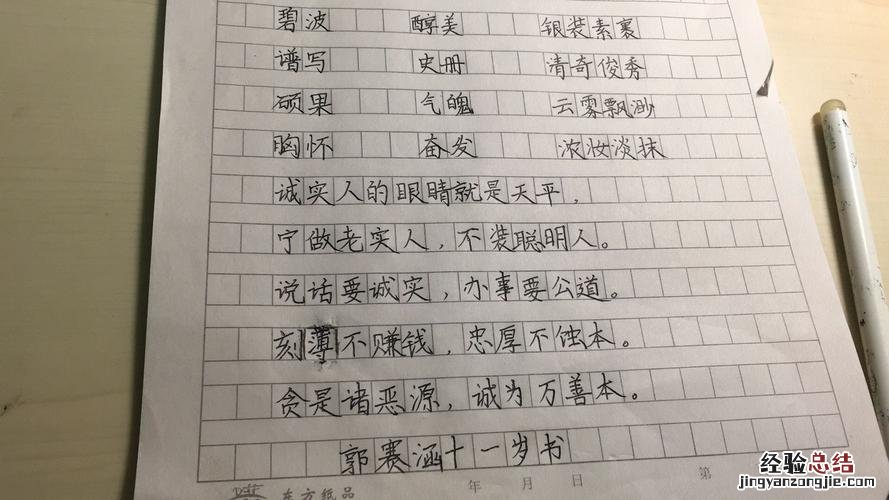 碧波 醇美 银装素裹
谱写 史册 清奇俊秀
硕果 气魄 云雾飘渺
胸怀 奋发 浓妆淡抹
诚实人的眼睛就是天平,
宁做老实人,不装聪明人。
说话要诚实,办事要公道。
刻薄不赚钱,忠厚不蚀本。
贪是诸恶源,诚为万善本。
郭赛涵十一岁书
东方纸品 年 月 日 第
经验总结
jingyanzongjie.com